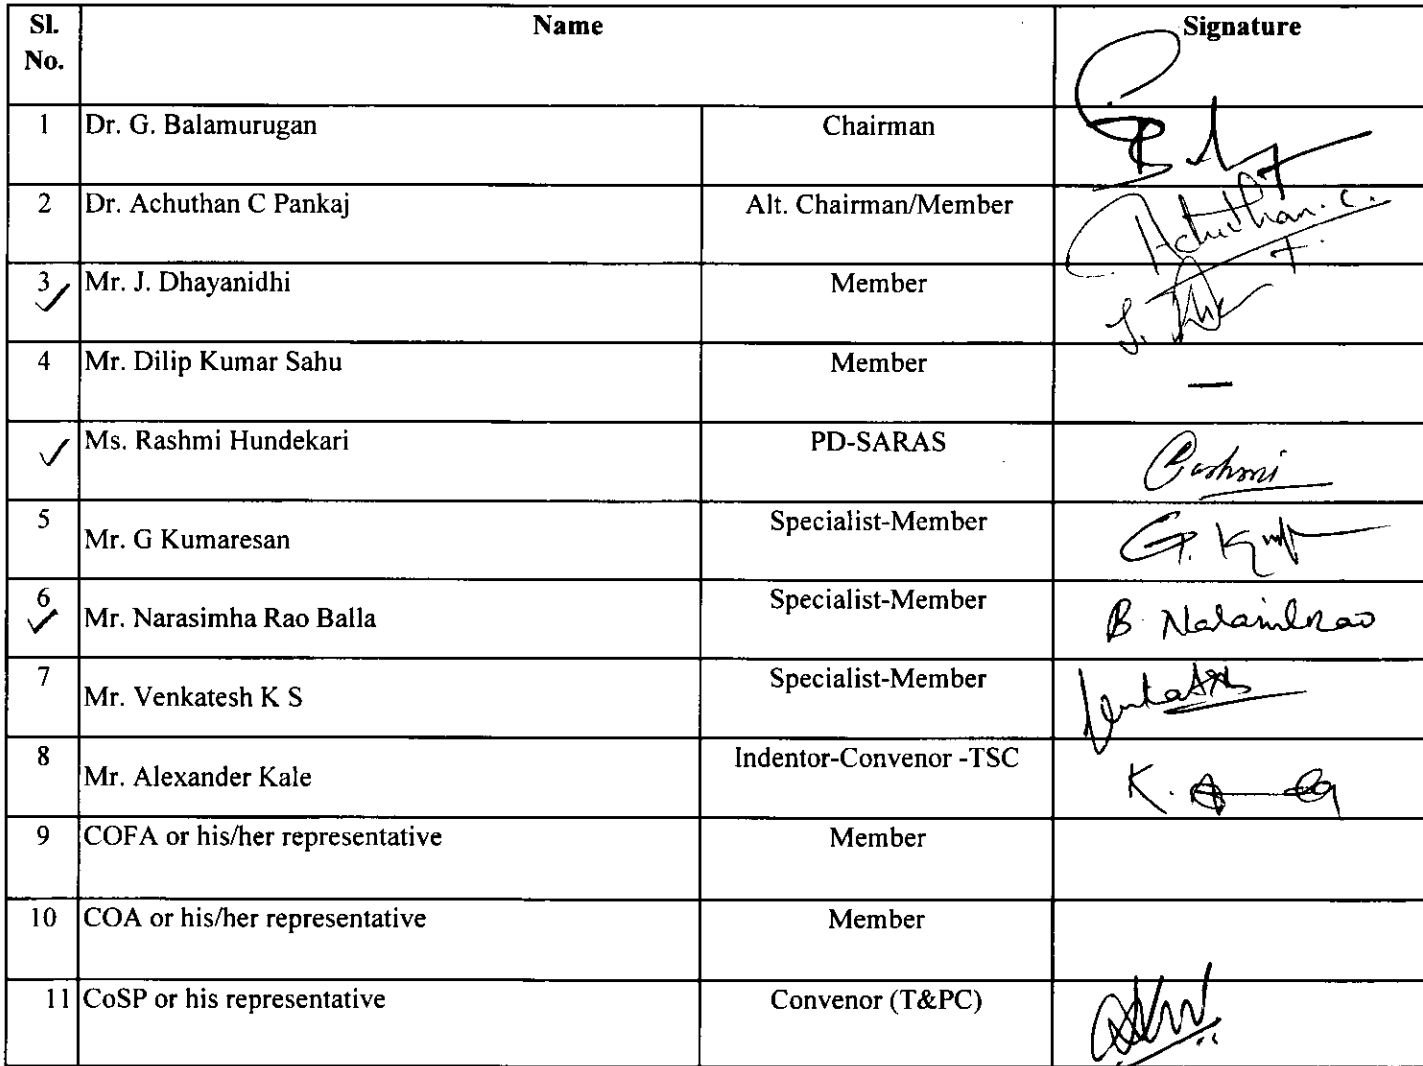 Sl. No. Name Signature
1 Dr. G. Balamurugan Chairman
2 Dr. Achuthan C Pankaj Alt. Chairman/Member Achuthan. C.
3 Mr. J. Dhayanidhi Member J.
4 Mr. Dilip Kumar Sahu Member —
Ms. Rashmi Hundekari PD-SARAS Rashmi
5 Mr. G Kumaresan Specialist-Member G.
6 Mr. Narasimha Rao Balla Specialist-Member B.
7 Mr. Venkatesh K S Specialist-Member
8 Mr. Alexander Kale Indentor-Convenor -TSC K.
9 COFA or his/her representative Member
10 COA or his/her representative Member
11 CoSP or his representative Convenor (T&PC)